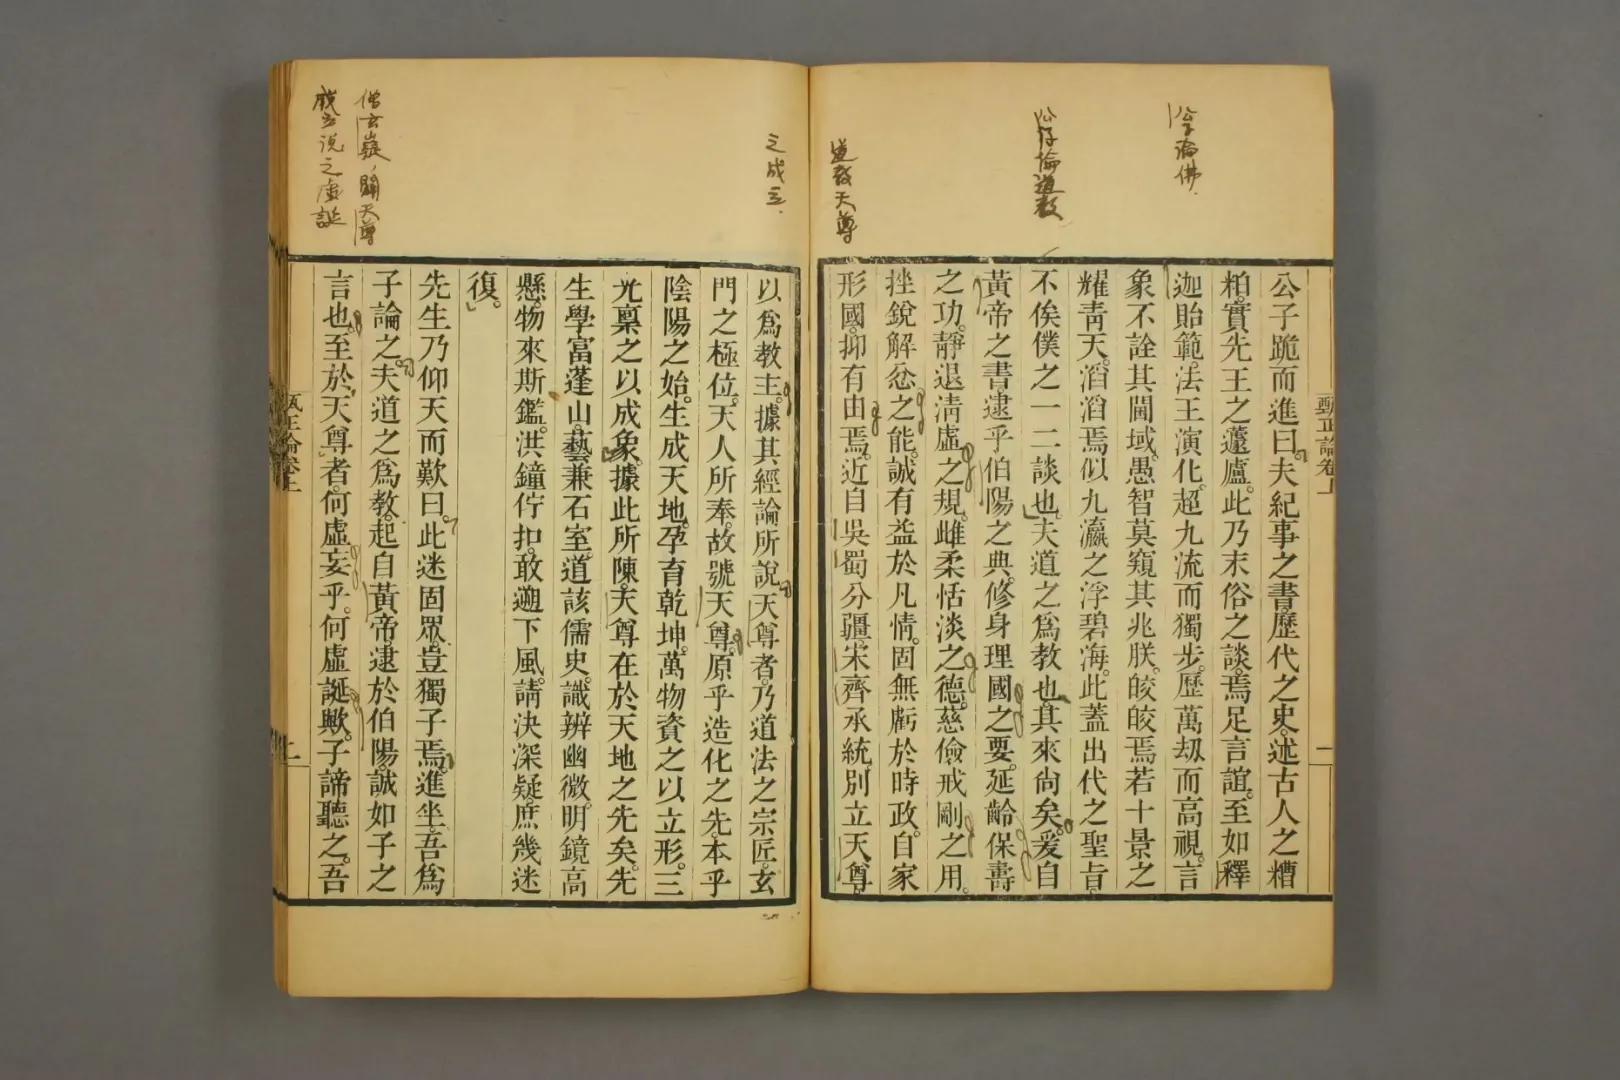 公子論佛
公子論道教
道教天尊
之成立
僧玄嶷闢天尊
成立說之虛誕
甄正論卷上
一
公子跪而進曰。夫紀事之書。歷代之史。述古人之糟
粕。實先王之蘧廬。此乃末俗之談。焉足言誼。至如釋
迦貽範。法王演化。超九流而獨步。歷萬劫而高視。言
象不詮其閫域。愚智莫窺其兆朕。皎皎焉若十景之
耀靑天。滔滔焉似九瀛之浮碧海。此蓋出代之聖旨。
不俟僕之一二談也。夫道之爲教也。其來尚矣。爰自
黃帝之書。逮乎伯陽之典。修身理國之要。延齡保壽
之功。靜退淸虛之規。雌柔恬淡之德。慈儉戒剛之用。
挫銳解忿之能。誠有益於凡情。固無虧於時政。自家
形國。抑有由焉。近自吳蜀分疆。宋齊承統。別立天尊
以爲教主。據其經論所說。天尊者。乃道法之宗匠。玄
門之極位。天人所奉。故號天尊。原乎造化之先。本乎
陰陽之始。生成天地。孕育乾坤。萬物資之以立形。三
光稟之以成象。據此所陳。天尊在於天地之先矣。先
生學富蓬山。藝兼石室。道該儒史。識辨幽微。明鏡高
懸。物來斯鑑。洪鐘佇扣。敢遡下風。請決深疑。庶幾迷
復。
先生乃仰天而歎曰。此迷固眾。豈獨子焉。進坐。吾爲
子論之。夫道之爲教。起自黃帝。逮於伯陽。誠如子之
言也。至於天尊者。何虛妄乎。何虛誕歟。子諦聽之。吾
甄正論卷上
二